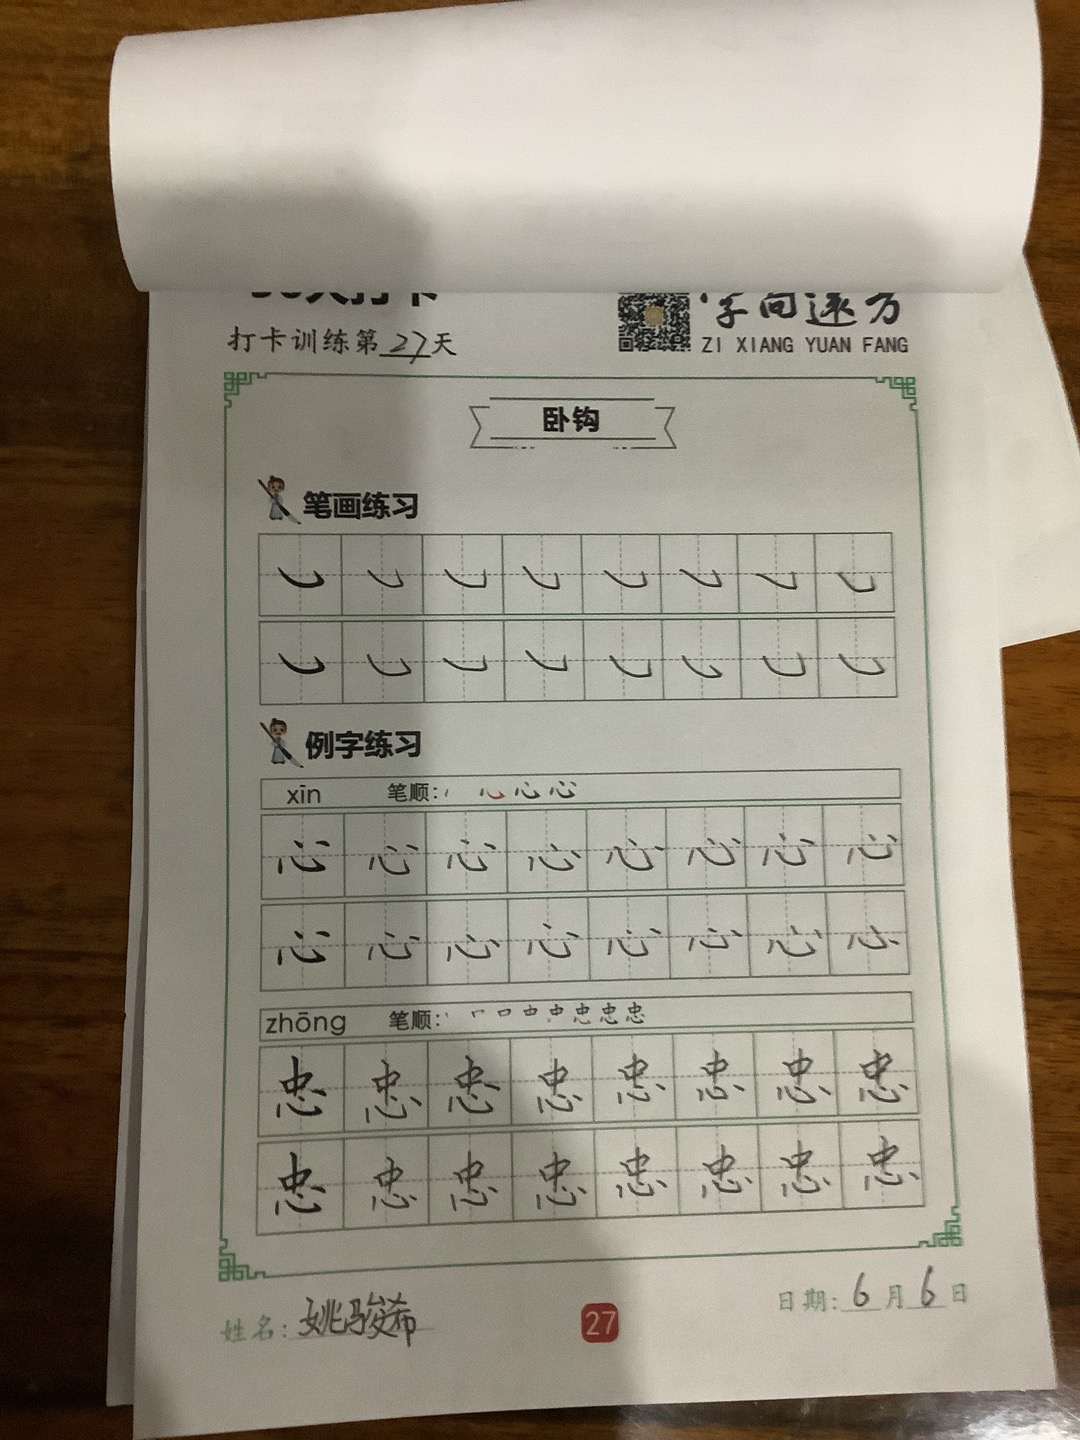 打卡训练第27天
字向远方
ZI XIANG YUAN FANG
卧钩
笔画练习
例字练习
xīn 笔顺:
心 心 心 心 心 心 心 心
心 心 心 心 心 心 心 心
zhōng 笔顺:
忠 忠 忠 忠 忠 忠 忠 忠
忠 忠 忠 忠 忠 忠 忠 忠
姓名:姚骏希
27
日期:6月6日